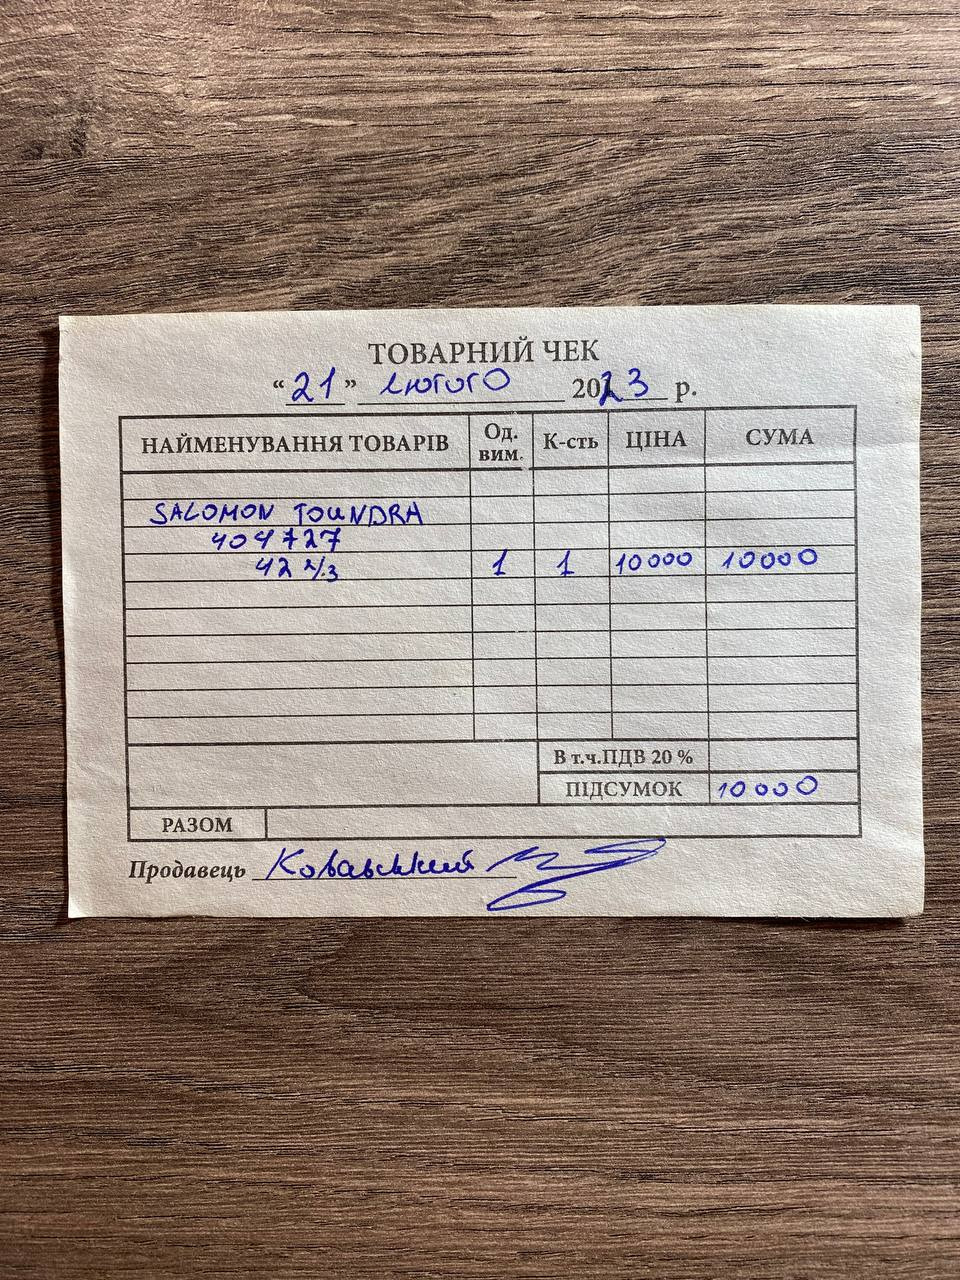 ТОВАРНИЙ ЧЕК
“21” лютого 2023 р.
НАЙМЕНУВАННЯ ТОВАРІВ Од. вим. К-сть ЦІНА СУМА
SALOMON TOUNDRA
404727
42 2/3 1 1 10000 10000
В т.ч.ПДВ 20 %
ПІДСУМОК 10000
РАЗОМ
Продавець